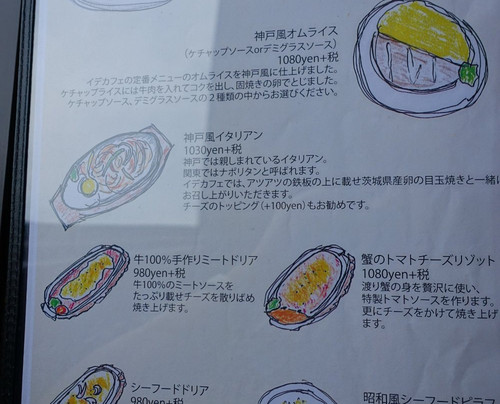 神戸風オムライス
（ケチャップソースorデミグラスソース）
1080yen+税
イデカフェの定番メニューのオムライスを神戸風に仕上げました。
ケチャップライスには牛肉を入れてコクを出し、固焼きの卵でとじました。
ケチャップソース、デミグラスソースの２種類の中からお選びください。
神戸風イタリアン
1030yen+税
神戸では親しまれているイタリアン。
関東ではナポリタンと呼ばれます。
イデカフェでは、アツアツの鉄板の上に載せ茨城県産卵の目玉焼きと一緒に
お召し上がりいただきます。
チーズのトッピング（+100yen）もお勧めです。
牛100%手作りミートドリア
980yen+税
牛100%のミートソースを
たっぷり載せチーズを散りばめ
焼き上げます。
蟹のトマトチーズリゾット
1080yen+税
渡り蟹の身を贅沢に使い、
特製トマトソースを作ります。
更にチーズをかけて焼き上げ
ます。
シーフードドリア
980yen+税
昭和風シーフードピラフ